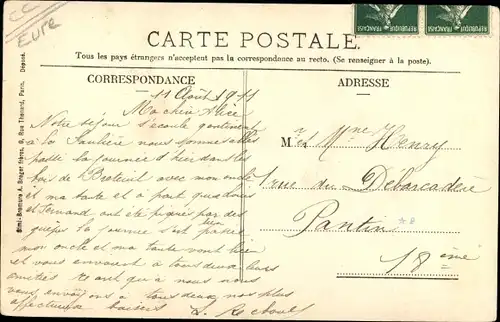 CC
Eure
REPUBLIQUE FRANÇAISE
REPUBLIQUE FRANÇAISE
CARTE POSTALE.
Tous les pays étrangers n'acceptent pas la correspondance au recto. (Se renseigner à la poste).
CORRESPONDANCE
ADRESSE
11 Août 1911
Ma chère Alice
Notre séjour s'écoule gentiment
à La nous sommes allés
passé la journée d'hier dans les
bois de Breteuil avec mon oncle
et ma tante et à part que nous
et Fernand ont été piqués par des
guêpes la journée s'est bien passée
mon oncle et ma tante vont bien
et vous envoient à tous deux leurs
amitiés quant à nous nous
vous envoyons à tous deux nos plus
affectueux baisers
Mr et Mme Henry
1 rue du Débarcadère
Pantin
18 ème
Simi-Bromure A. Breger frères, 9, Rue Thénard, Paris. Déposé.